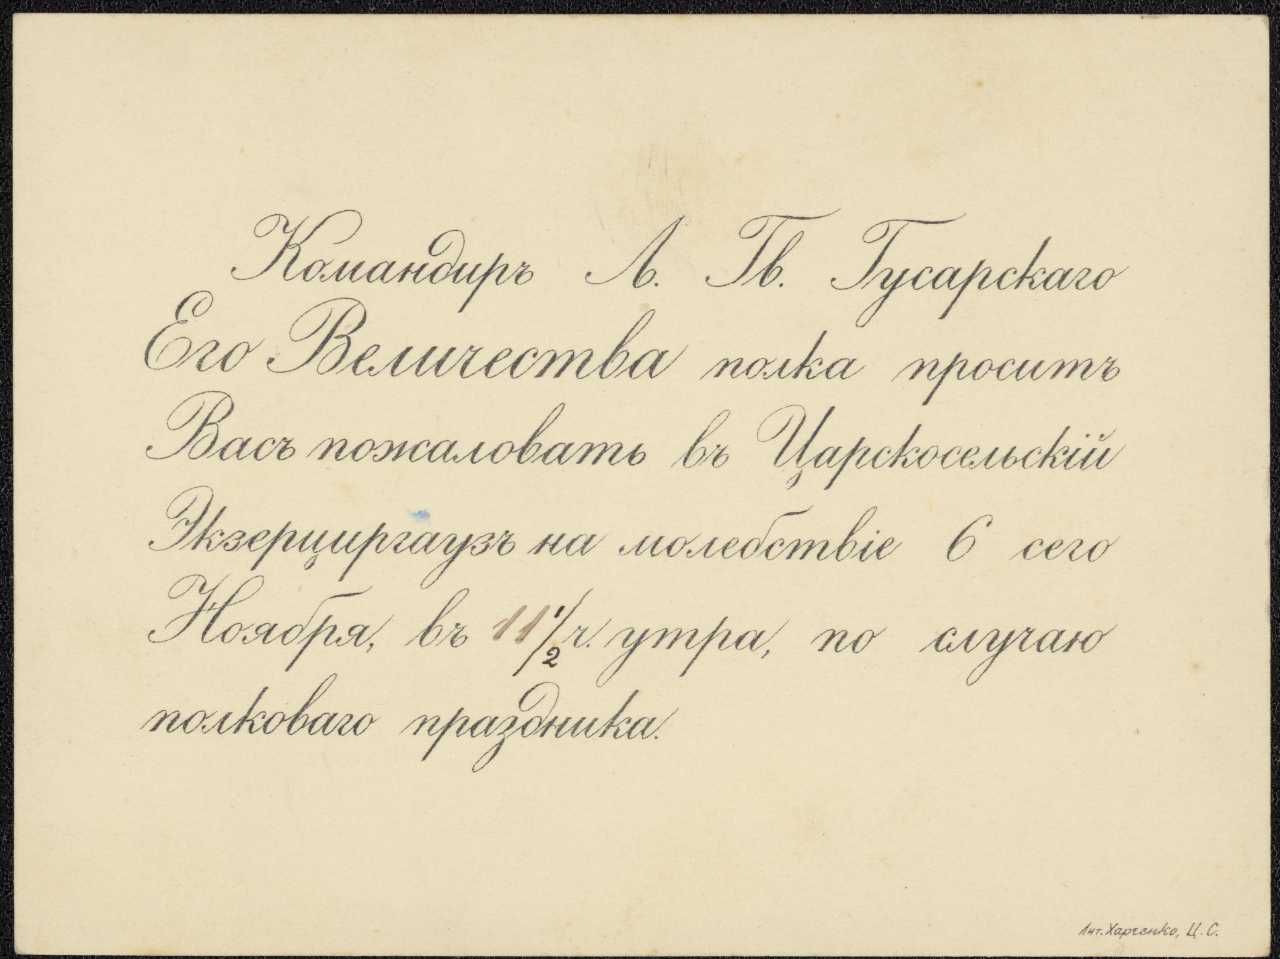 Командиръ Л. Гв. Гусарскаго
Его Величества полка проситъ
Васъ пожаловать въ Царскосельскій
Экзерциргаузъ на молебствіе 6 сего
Ноября, въ 11 1/2 ч. утра, по случаю
полковаго праздника.
Лит. Харченко, Ц. С.